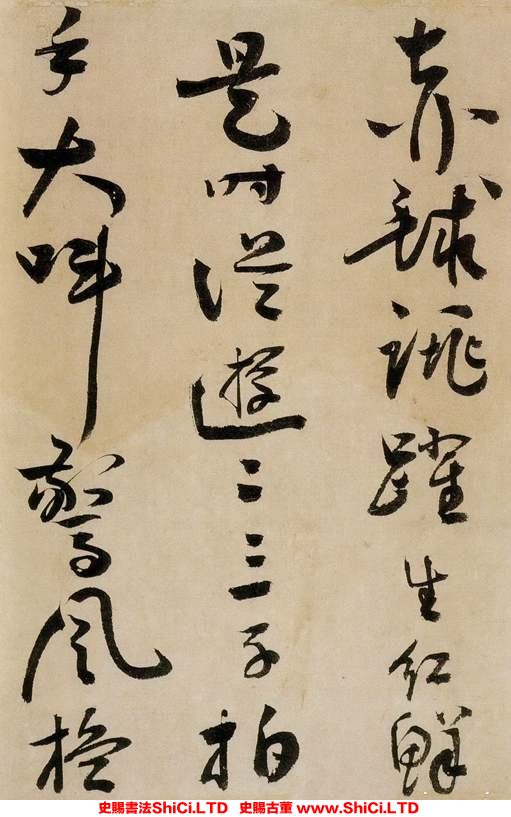 赤球跳躍生紅鮮
是時從遊二三子拍
手大叫驚風捲
史賜書法ShiCi.LTD 史賜古董 www.ShiCi.LTD